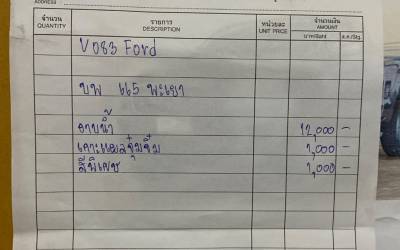 ADDRESS
จำนวน รายการ หน่วยละ จำนวนเงิน
QUANTITY DESCRIPTION UNIT PRICE AMOUNT
บาท/Baht ส.ต./Stg.
V083 Ford
บพ 665 พะเยา
อาบน้ำ 12,000 -
เคาะแผลซุ้มซิ้ม 1,000 -
สีพิเศษ 1,000 -